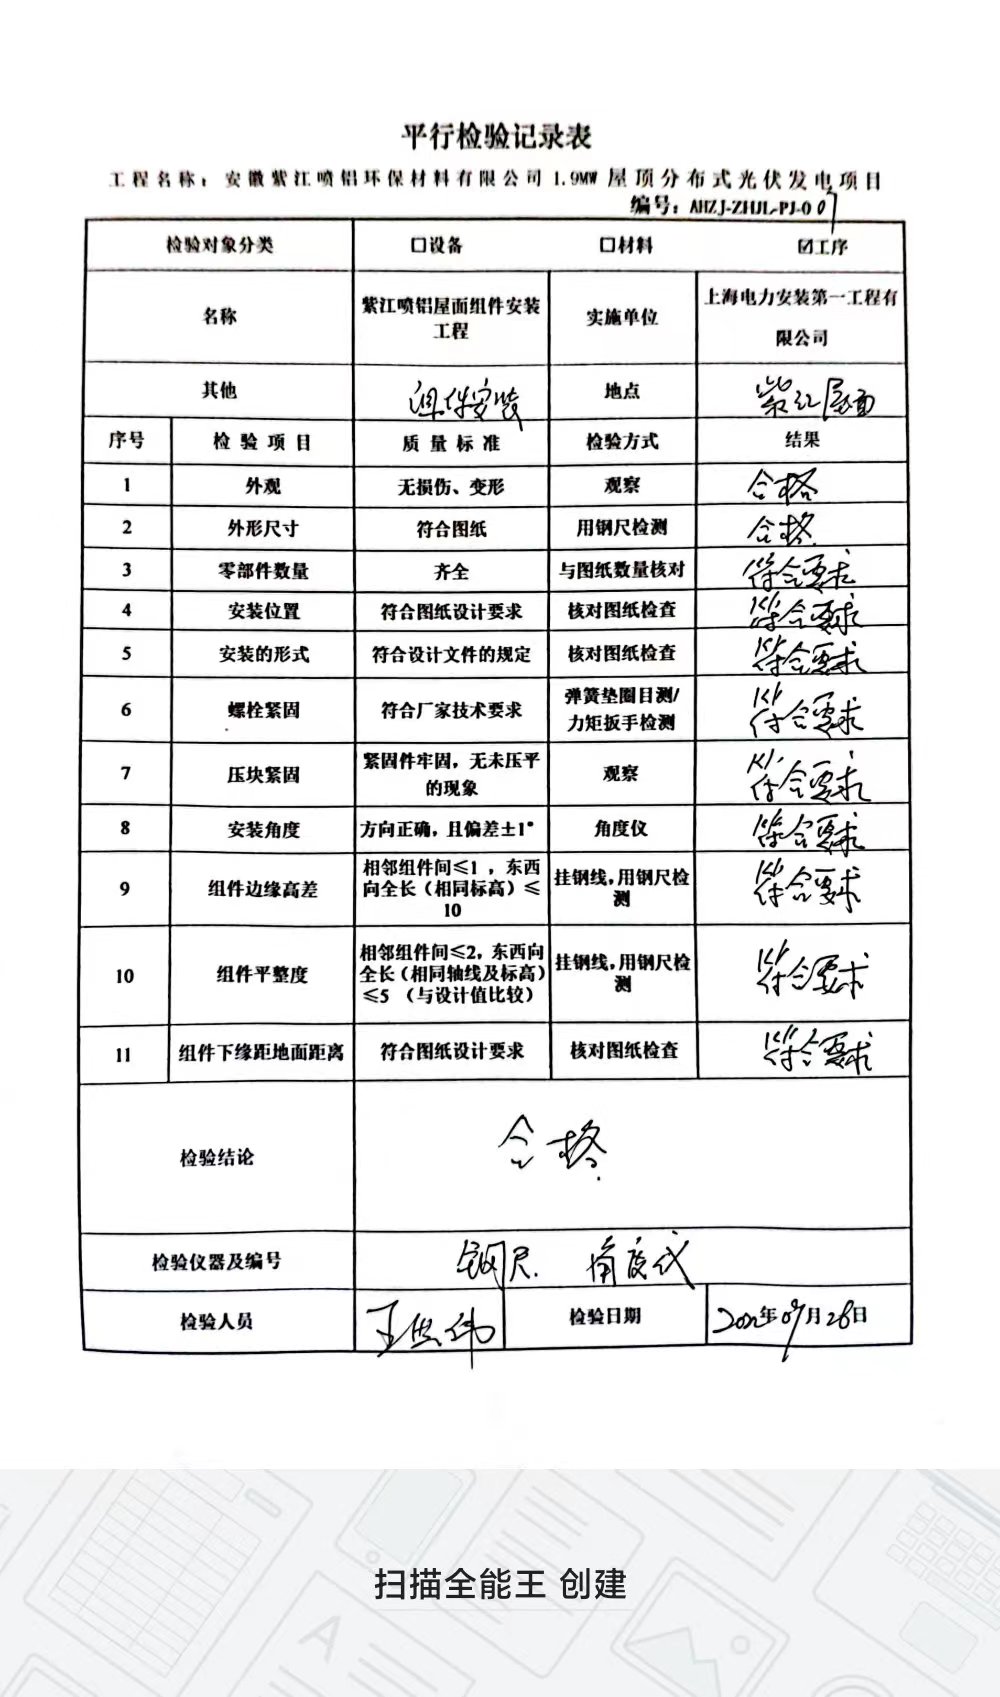 平行检验记录表
工程名称：安徽紫江喷铝环保材料有限公司1.9MW屋顶分布式光伏发电项目
编号：AHZJ-ZHJL-PJ-007
检验对象分类 □设备 □材料 ☑工序
名称 紫江喷铝屋面组件安装工程 实施单位 上海电力安装第一工程有限公司
其他 组件安装 地点 紫江屋面
序号 检验项目 质量标准 检验方式 结果
1 外观 无损伤、变形 观察 合格
2 外形尺寸 符合图纸 用钢尺检测 合格
3 零部件数量 齐全 与图纸数量核对 符合要求
4 安装位置 符合图纸设计要求 核对图纸检查 符合要求
5 安装的形式 符合设计文件的规定 核对图纸检查 符合要求
6 螺栓紧固 符合厂家技术要求 弹簧垫圈目测/力矩扳手检测 符合要求
7 压块紧固 紧固件牢固，无未压平的现象 观察 符合要求
8 安装角度 方向正确，且偏差±1° 角度仪 符合要求
9 组件边缘高差 相邻组件间≤1，东西向全长（相同标高）≤10 挂钢线，用钢尺检测 符合要求
10 组件平整度 相邻组件间≤2，东西向全长（相同轴线及标高）≤5（与设计值比较） 挂钢线，用钢尺检测 符合要求
11 组件下缘距地面距离 符合图纸设计要求 核对图纸检查 符合要求
检验结论 合格
检验仪器及编号 钢尺. 角度仪
检验人员 检验日期 2022年09月28日
扫描全能王 创建